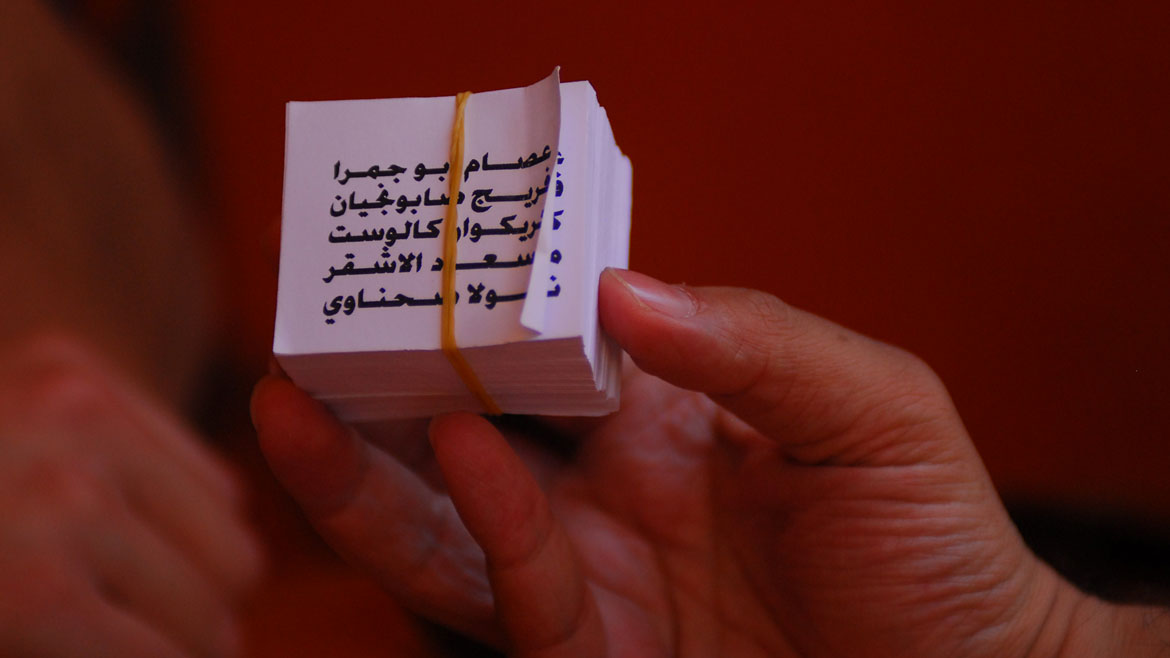 عصام ابو جمرا
فريج صابونجيان
كريكوار كالوست
مسعود الاشقر
نقولا صحناوي